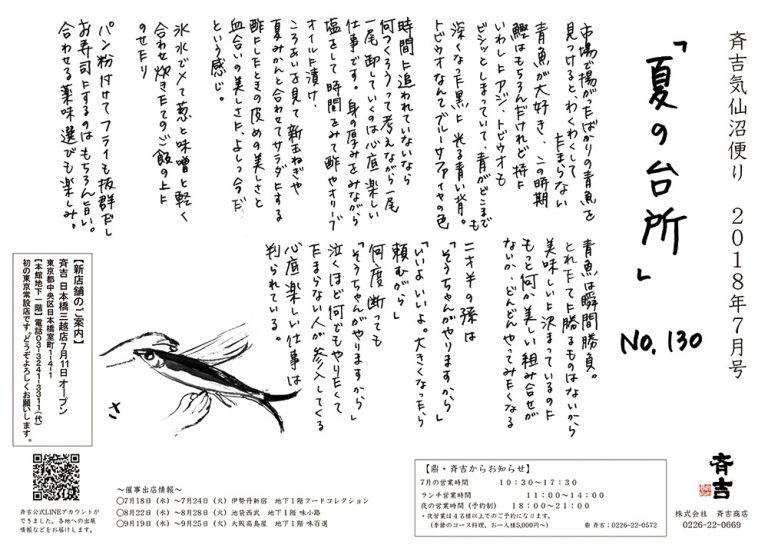 斉吉気仙沼便り 2018年7月号
「夏の台所」
No.130
市場で揚がったばかりの青魚を
見つけると、わくわくして
たまらない
青魚が大好き、この時期
鰹はもちろんだけれど特に
いわしにアジ、トビウオも
ビシッとしまっていて、青がどこまでも
深くなった黒に光る青い背。
トビウオなんてブルーサファイヤの色
時間に追われていないなら
何つくろうって考えながら一尾
一尾卸していくのは心底楽しい
仕事です。身の厚みをみながら
塩をして時間をみて酢やオリーブ
オイルに漬け、
ころあいを見て新玉ねぎや
夏みかんと合わせてサラダにする
酢にしたときの皮めの美しさと
血合いの美しさに、よしっ今だ、
という感じ。
氷水で〆て葱と味噌と軽く
合わせ炊きたてのご飯の上に
のせたり
パン粉付けてフライも抜群だし
お寿司にするのはもちろん旨い。
合わせる薬味選びも楽しみ。
青魚は瞬間勝負。
とれたてに勝るものはないから
美味しいに決まっているのに
もっと何か美しい組み合せが
ないか、どんどんやってみたくなる
二才半の孫は
「そうちゃんがやりますから」
「いいよいいよ。大きくなったら
頼むがら」
何度断っても
「そうちゃんがやりますから」
泣くほど何でもやりたくて
たまらない人が参入してくる
心底楽しい仕事は
判られている。
さ
【新店舗のご案内】
斉吉 日本橋三越店7月11日オープン
東京都中央区日本橋室町1-4-1
【本館地下一階】電話03-3241-3311(代)
初の東京常設店です。どうぞよろしくお願いします。
斉吉公式LINEアカウントが
できました。各地への出展
情報などをお届けします。
～催事出店情報～
○7月18日(水)～7月24日(火)伊勢丹新宿 地下1階フードコレクション
○8月22日(水)～8月28日(火)池袋西武 地下1階 味小路
○9月19日(水)～9月25日(火)大阪高島屋 地下1階 味百選
【鼎・斉吉からお知らせ】
7月の営業時間 10:30～17:30
ランチ営業時間 11:00～14:00
夜の営業時間(予約制) 18:00～21:00
・夜営業は4名様以上でのご予約になります。
(季節のコース料理、お一人様5,000円～)
鼎 斉吉:0226-22-0572
斉吉
株式会社 斉吉商店
0226-22-0669